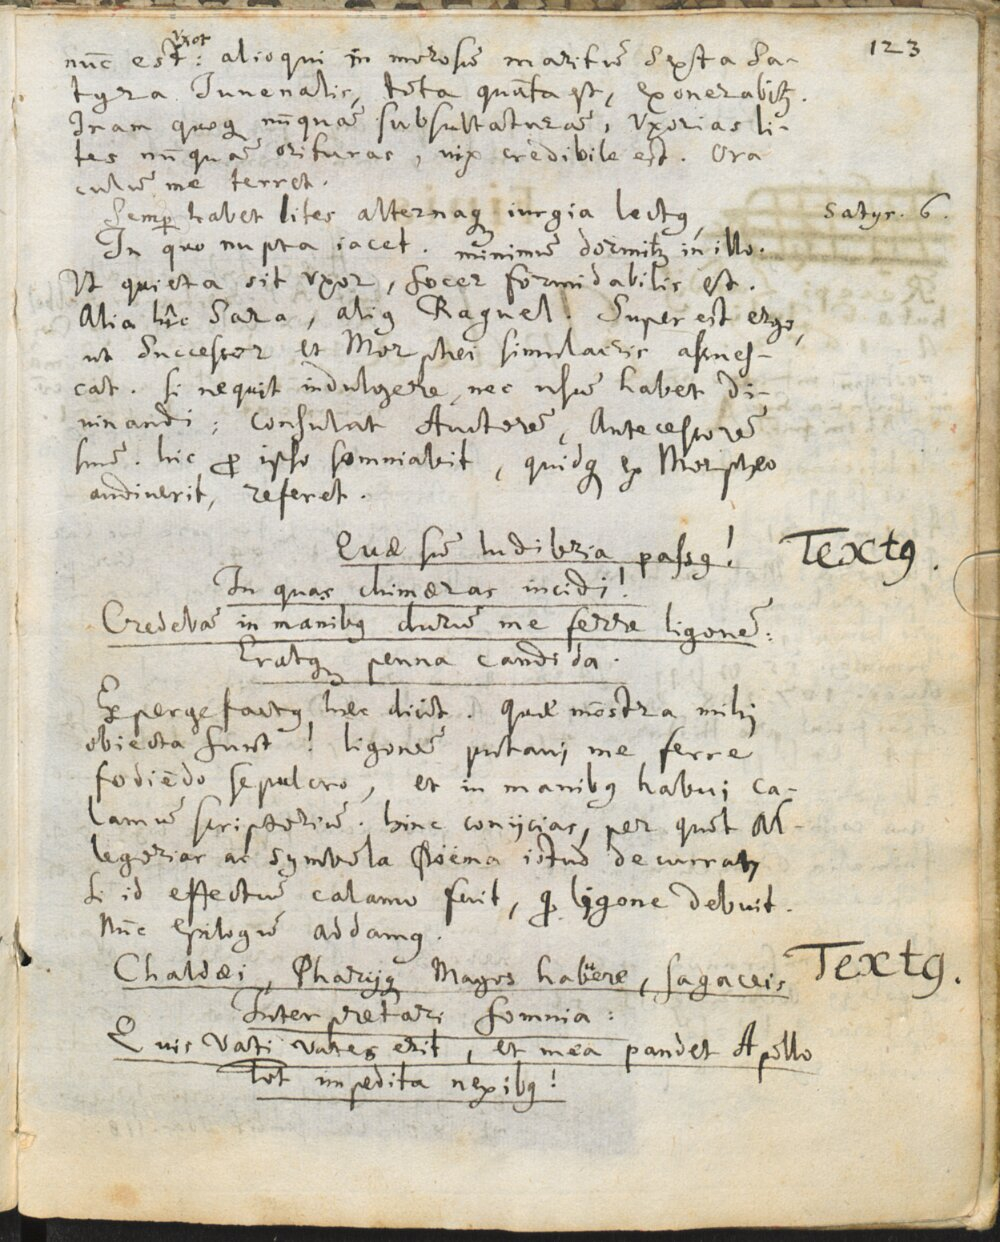 123
uxor
nūc est: alioqui in morosū maritū Sexta Sa-
tyra Juuenalis, tota quāta est, exonerabitʒ.
Iram quoqꝫ nūquā subsultaturā, Vxorias li-
tes nūquā orituras, uix credibile est. Ora
culū me terret.
Semꝑ habet lites alternaqꝫ iurgia lectꝯ, Satyr. 6.
In quo nupta iacet. minimū dormitʒ in illo.
Vt quieta sit Vxor, Socer formidabilis est.
Alia hîc Sara, aliꝯ Raguel. Superest ergo,
ut Successor et Morphei simulacris assues-
cat. Si nequit indulgere, nec usū habet Di-
uinandi; Consulat Auctorē, Antecessorē
suū. hic ꝓ ipso somniabit, quidqꝫ ex Morpheo
audiuerit, referet.
Quæ sū ludibria passꝯ! Textꝯ.
In quas chimæras incidi!
Credebā in manibꝯ durū me ferre ligonē:
Eratqꝫ penna candida.
Expergefactꝯ hæc dicit. Quæ mōstra mihj
obiecta sunt! ligonē putauj me ferre
fodiēdo sepulcro, et in manibꝯ habuj ca-
lamū scriptoriū. hinc conijcias, per quot Al-
legorias ac Symbola Poëma istud decurrat,
Si id effectū calamo fuit, qꝫ ligone debuit.
Nūc epilogū addamꝯ.
Chaldæi, Pharijqꝫ Magos habuêre, sagaceis Textꝯ.
Interpretari somnia:
Quis Vati vates erit, et mea pandet Apollo
tot impedita nexibꝯ!